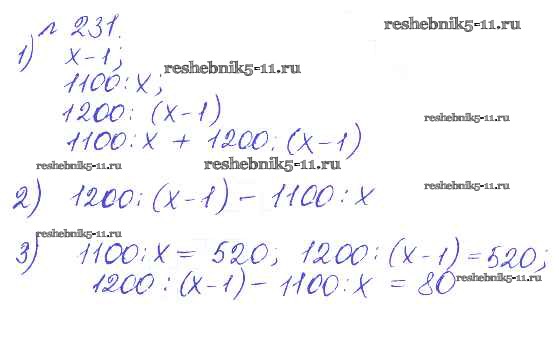 № 231.
reshebnik5-11.ru
1) x-1;
1100:x;
reshebnik5-11.ru
1200: (x-1)
reshebnik5-11.ru
1100:x + 1200:(x-1)
reshebnik5-11.ru
reshebnik5-11.ru
2) 1200:(x-1) - 1100:x
reshebnik5-11.ru
reshebnik5-11.ru
3) 1100:x = 520; 1200:(x-1)=520;
1200:(x-1) - 1100:x = 80
reshebnik5-11.ru